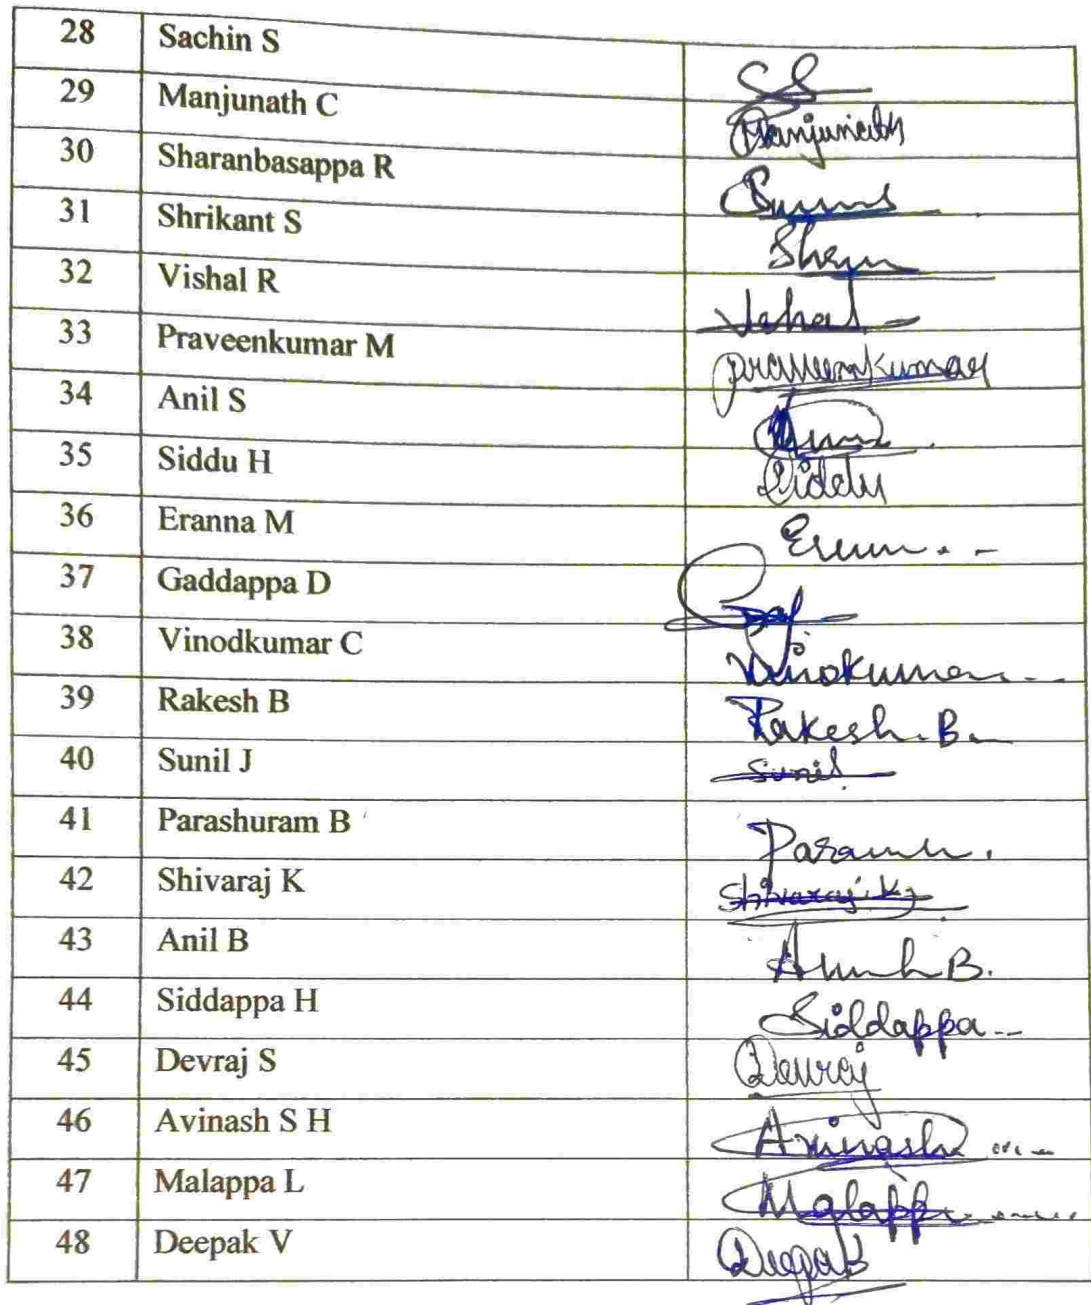 28 Sachin S
29 Manjunath C Manjunath
30 Sharanbasappa R
31 Shrikant S
32 Vishal R
33 Praveenkumar M praveenkumar
34 Anil S
35 Siddu H Siddu
36 Eranna M
37 Gaddappa D
38 Vinodkumar C
39 Rakesh B Rakesh.B.
40 Sunil J Sunil
41 Parashuram B
42 Shivaraj K Shivaraj.K
43 Anil B
44 Siddappa H Siddappa
45 Devraj S Devraj
46 Avinash S H Avinash
47 Malappa L Malapp
48 Deepak V Deepak